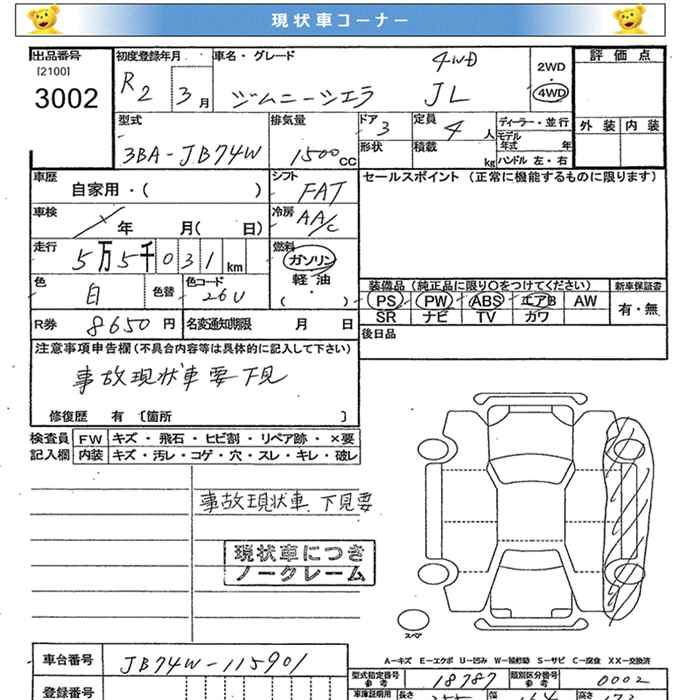 現状車コーナー
出品番号
[2100]
3002
初度登録年月
R2年 3月
車名・グレード
ジムニーシエラ JL 4WD
2WD
・
4WD
評価点
外装 内装
型式
3BA-JB74W
排気量
1500cc
ドア 3
形状
定員 4人
積載 kg
ディーラー・並行
モデル年式 年
ハンドル 左・右
車歴
自家用・( )
シフト FAT
セールスポイント (正常に機能するものに限ります)
車検
年 月( 日)
冷房 AA/C
走行
5万5千031km
燃料
ガソリン
軽油
・
( )
色 白 色替
色コード 26U
装備品 (純正品に限り○をつけてください)
新車保証書
PS PW ABS エアB AW
SR ナビ TV カワ
有・無
R券 8650円
名変通知期限 月 日
後日品
注意事項申告欄 (不具合内容等は具体的に記入して下さい)
事故現状車要下見
修復歴 有 〔箇所 〕
検査員 FW キズ・飛石・ヒビ割・リペア跡・×要
記入欄 内装 キズ・汚レ・コゲ・穴・スレ・キレ・破レ
事故現状車 下見要
現状車につき
ノークレーム
スペア
A-キズ E-エクボ U-凹み W-補修跡 S-サビ C-腐食 XX-交換済
車台番号 JB74W-115901
型式指定番号 参考 18787
類別区分番号 参考 0002
登録番号
車庫証明用
長さ
幅
高さ